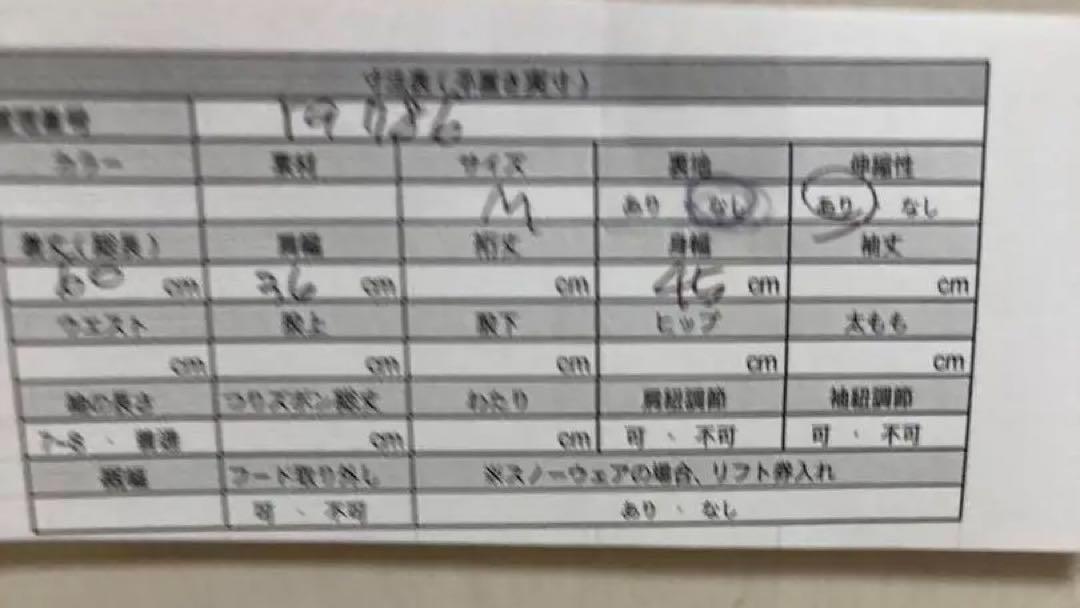 寸法表(平置き実寸)
管理番号 19786
カラー 素材 サイズ 裏地 伸縮性
M あり なし あり なし
着丈(総長) 肩幅 裄丈 身幅 袖丈
60 cm 36 cm cm 45 cm cm
ウエスト 股上 股下 ヒップ 太もも
cm cm cm cm cm
袖の長さ つりズボン総丈 わたり 肩紐調節 袖紐調節
普通 cm cm 可 ・ 不可 可 ・ 不可
裾幅 フード取り外し ※スノーウェアの場合、リフト券入れ
可 ・ 不可 あり ・ なし